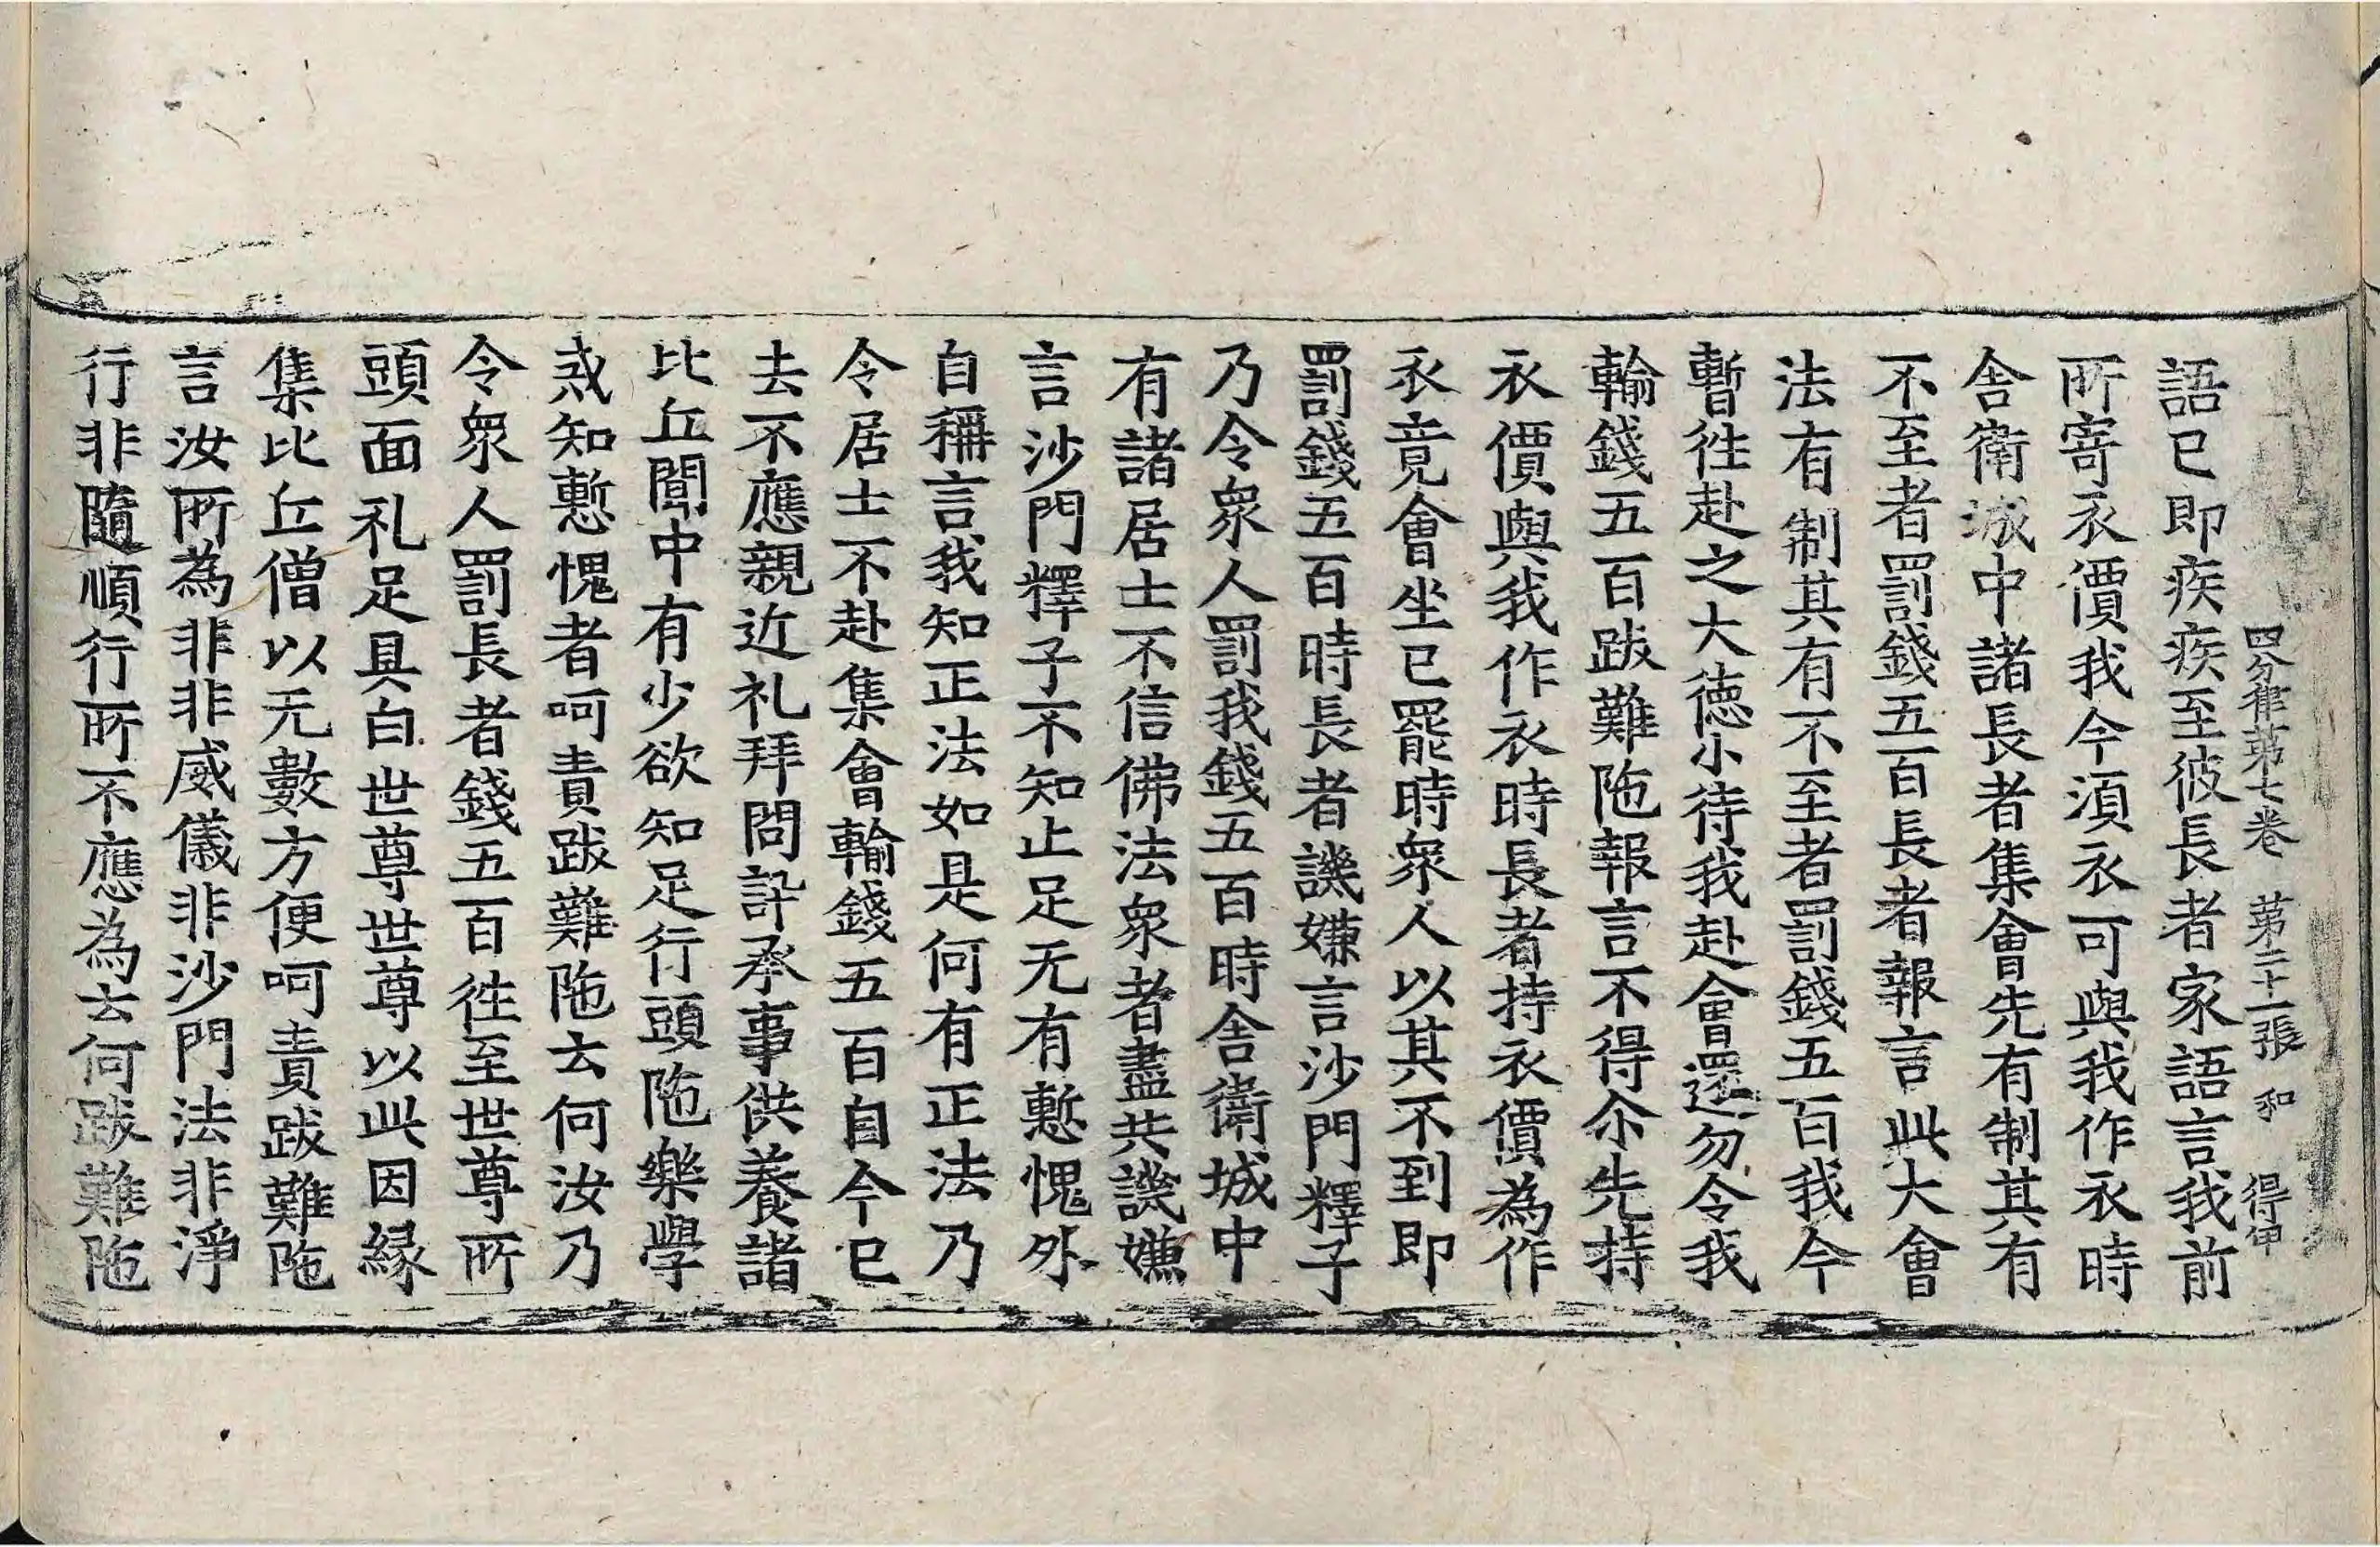 四分律第七卷 第二十一張 和 得甲
語已即疾疾至彼長者家語言我前
所寄衣價我今湏衣可與我作衣時
舍衛城中諸長者集會先有制其有
不至者罰錢五百長者報言此大會
法有制其有不至者罰錢五百我今
暫徃赴之大德小待我赴會還勿令我
輸錢五百跋難陁報言不得尒先持
衣價與我作衣時長者持衣價為作
衣竟會坐已罷時衆人以其不到即
罰錢五百時長者譏嫌言沙門釋子
乃令衆人罰我錢五百時舍衛城中
有諸居士不信佛法衆者盡共譏嫌
言沙門釋子不知止足无有慙愧外
自稱言我知正法如是何有正法乃
令居士不赴集會輸錢五百自今已
去不應親近礼拜問訊承事供養諸
比丘聞中有少欲知足行頭陁樂學
戒知慙愧者呵責跋難陁云何汝乃
令衆人罰長者錢五百徃至世尊所
頭面礼足具白世尊世尊以此因緣
集比丘僧以无數方便呵責跋難陁
言汝所為非非威儀非沙門法非淨
行非隨順行所不應為云何跋難陁